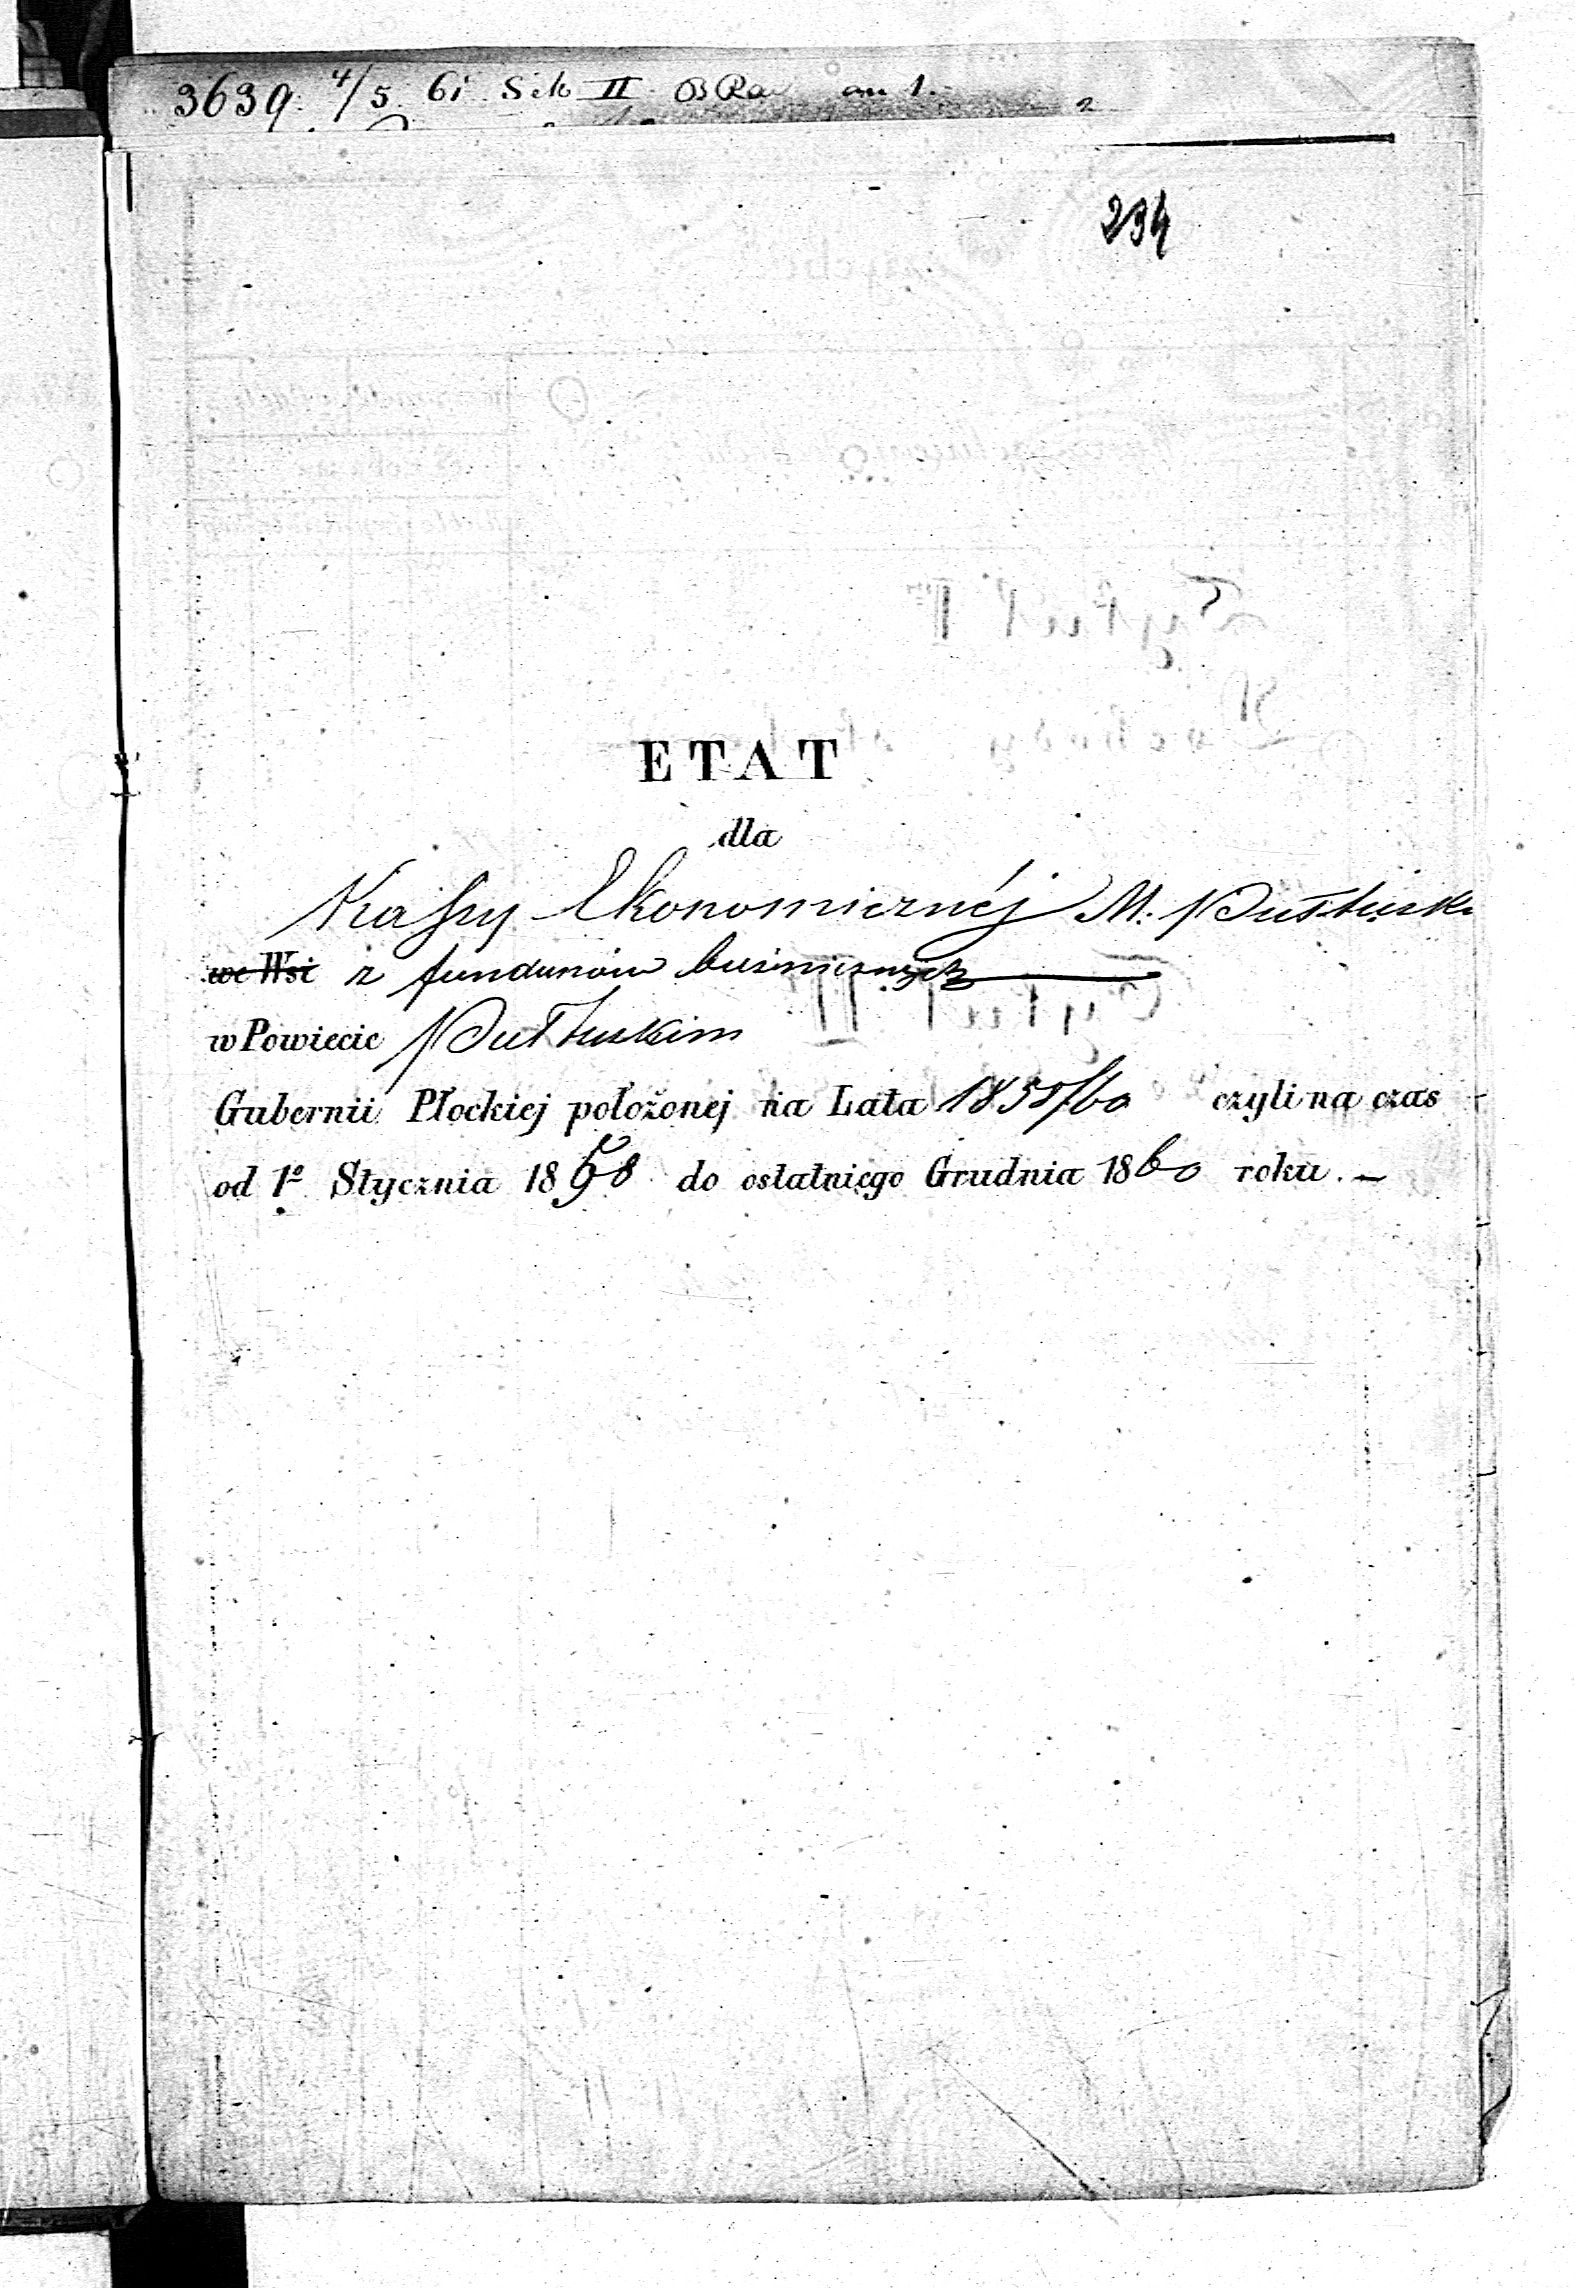 3639. 4/5 61 Sek II
234
ETAT
dla
Kassy Ekonomicznéj M. Pułtuska
we Wsi z funduszów bużniczych
w Powiecie Pułtuskim
Gubernii Płockiej położonej na Lata 1858/60 czyli na czas
od 1º Stycznia 1858 do ostatniego Grudnia 1860 roku.